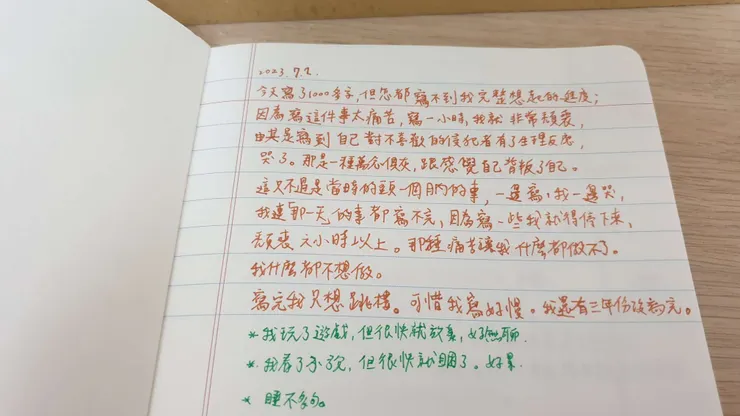 2023.7.2.
今天寫了1000多字，但怎都寫不到我完整想起的進度；
因為寫這件事太痛苦，寫一小時，我就非常頹喪，
尤其是寫到自己對不喜歡的侵犯者有了生理反應，
哭了。那是一種萬念俱灰，跟感覺自己背叛了自己。
這只不過是當時的頭一個月內的事，一邊寫，我一邊哭，
我連「那一天」的事都寫不完，因為寫一些我就得停下來，
頹喪六小時以上。那種痛苦讓我什麼都做不了。
我什麼都不想做。
寫完我只想跳樓。可惜我寫好慢。我還有三年份沒寫完。
*我玩了遊戲，但很快就放棄，好無聊.
*我看了小說，但很快就睏了。好累.
*睡不多句。